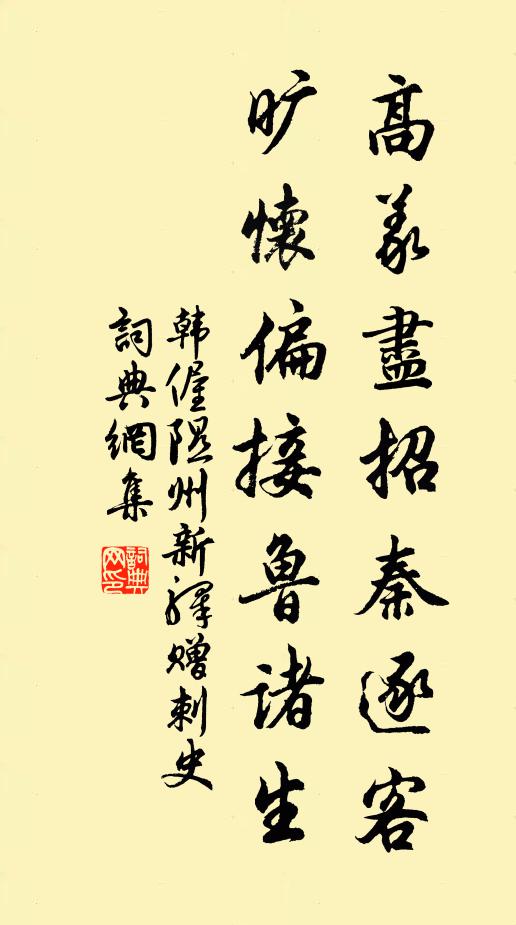 高義盡招秦逐客
旷懷偏接魯諸生
韩偓隰州新驛贈刺史
詞典網集
詞典网印